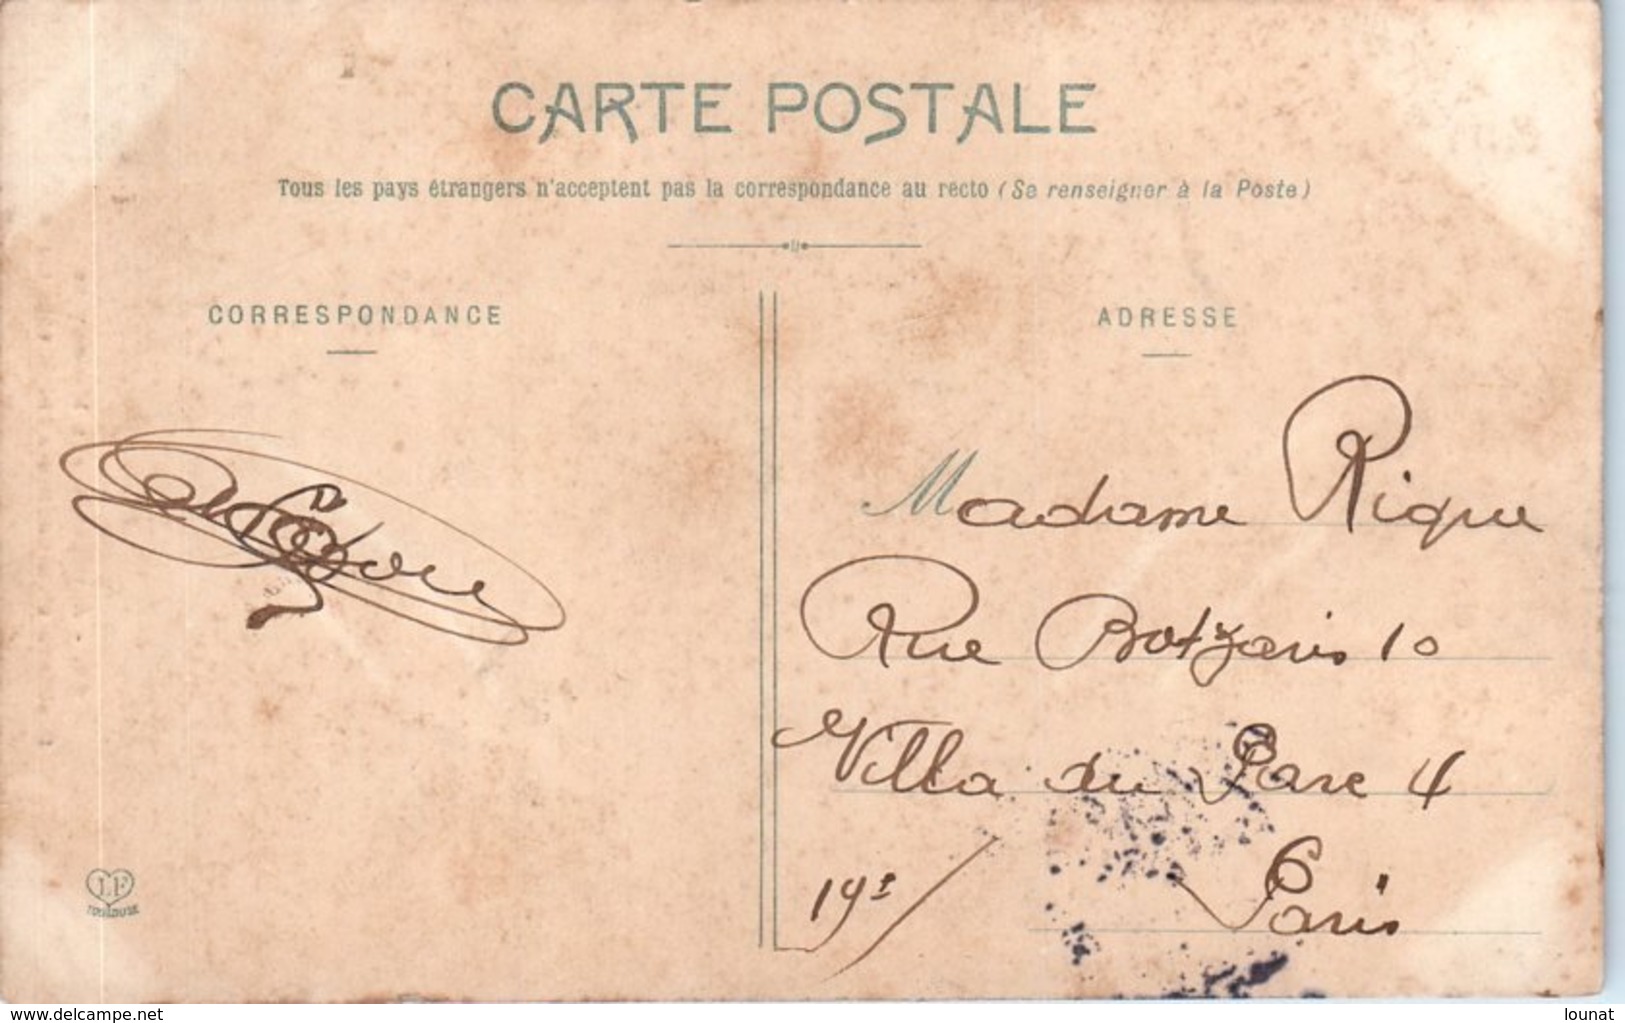 CARTE POSTALE
Tous les pays étrangers n'acceptent pas la correspondance au recto (Se renseigner à la Poste)
CORRESPONDANCE
ADRESSE
Madame Rique
Rue Botzaris 10
Villa du Parc 4
19e
Paris
LF
TOULOUSE
www.delcampe.net
lounat